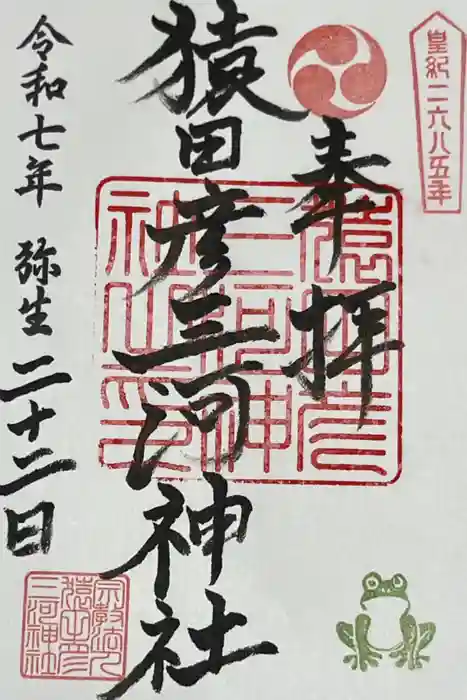 皇紀二六八五年
奉拝
猿田彦三河神社
猿田彦三河神社之印
令和七年 弥生 二十二日
宗教法人猿田彦三河神社